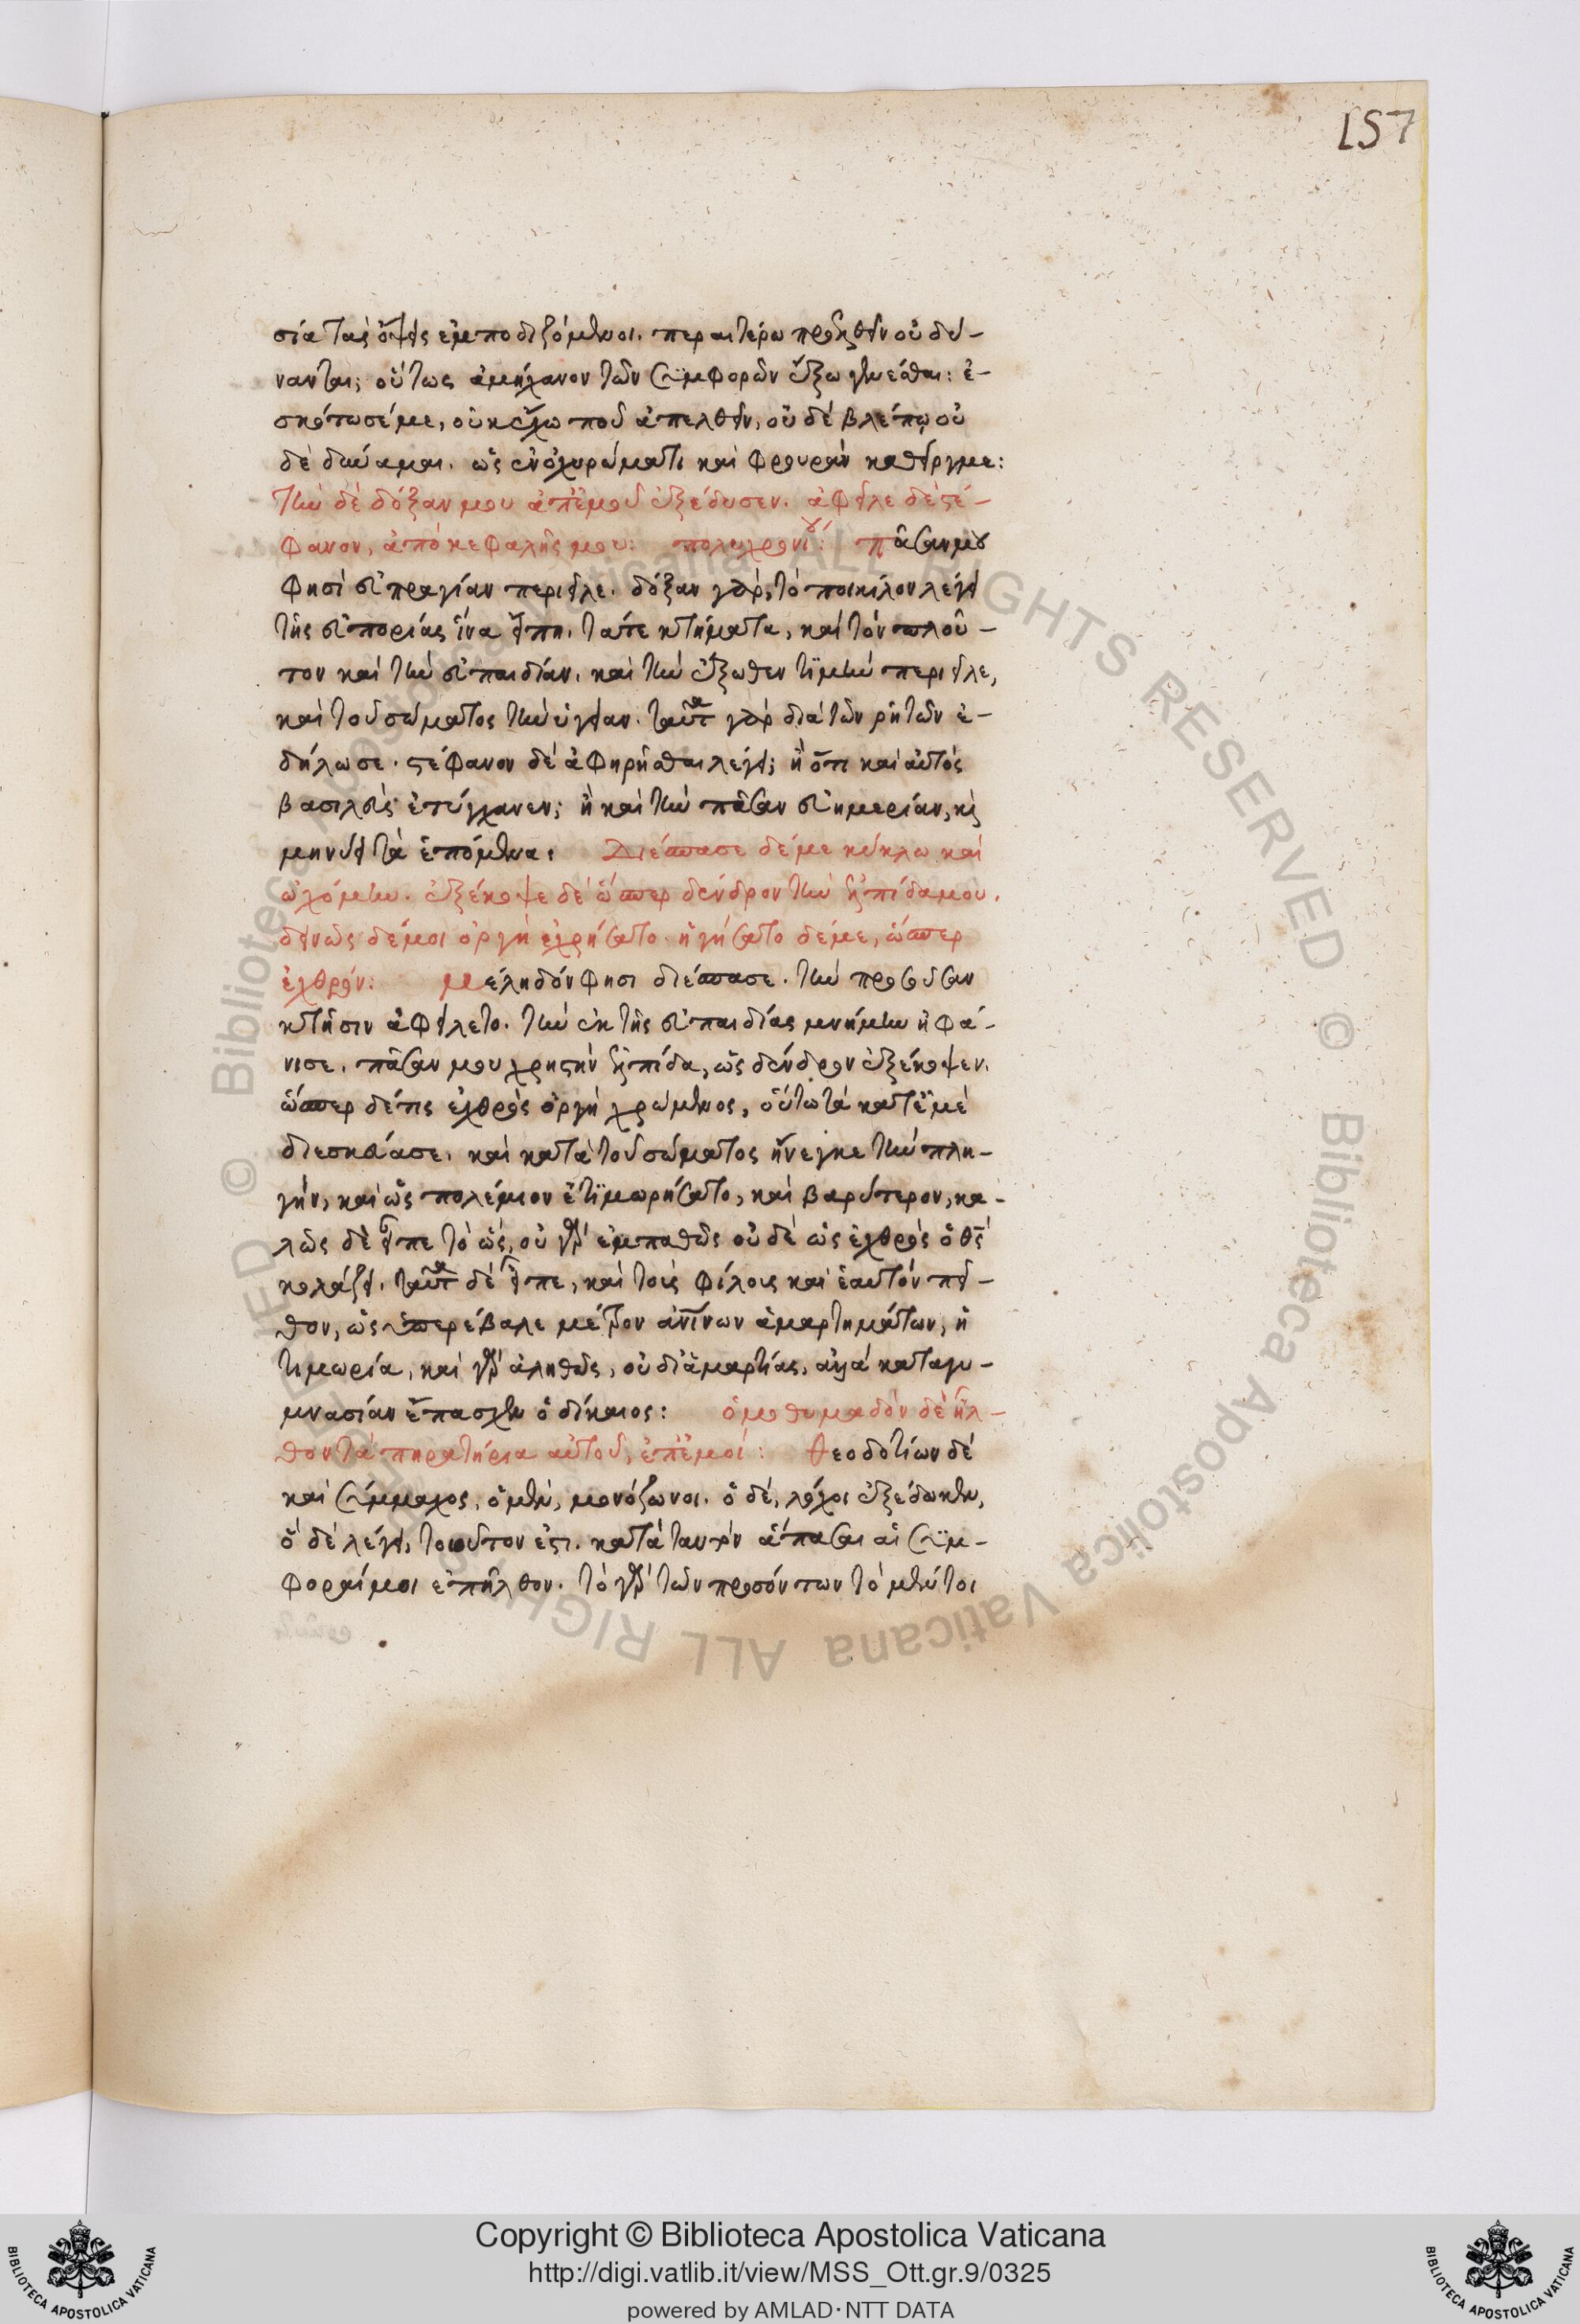 157
σία τὰς ὄψεις ἐμποδιζόμενοι. περαιτέρω προελθεῖν οὐ δύ-
νανται; οὕτως ἀμήχανον τῶν συμφορῶν ἔξω γενέσθαι: ἐ-
σκότωσέ με, οὐκ ἔχω ποῦ ἀπελθεῖν, οὐδὲ βλέπω οὐ
δὲ δύναμαι. ὡς ἐν ὀχυρώματι καὶ φρουρὰν καθεῖργμε:
τὴν δὲ δόξαν μου ἀπ' ἐμοῦ ἐξέδυσεν. ἀφεῖλε δὲ στέ-
φανον, ἀπὸ κεφαλῆς μου: πολυχρονίου: πᾶσαν μου
φησὶ εὐπραγίαν περιεῖλε. δόξαν γὰρ, τὸ ποικίλον λέγει
τῆς εὐπορίας ἵνα εἴπη. τά τε κτήματα, καὶ τὸν πλοῦ-
τον καὶ τὴν εὐπαιδίαν. καὶ τὴν ἔξωθεν τϊμὴν περιεῖλε,
καὶ τοῦ σώματος τὴν ὑγείαν. ταῦτα γὰρ διὰ τῶν ῥητῶν ἐ-
δήλωσε. στέφανον δὲ ἀφηρῆσθαι λέγει; ἢ ὅτι καὶ αὐτὸς
βασιλεὺς ἐτύγχανεν; ἢ καὶ τὴν πᾶσαν εὐημερίαν, κὶ
μηνύει τὰ ἑπόμενα: Διέσπασε δέ με κύκλω καὶ
ὠχόμην. ἐξέκοψε δὲ ὥσπερ δένδρον τὴν ἐλπίδα μου.
δεινῶς δέ μοι ὀργῆ ἐχρήσατο. ἡγήσατο δέ με, ὥσπερ
ἐχθρόν: μεληδόν φησι διέσπασε. τὴν προσοῦσαν
κτῆσιν ἀφείλετο. τὴν ἐκ τῆς εὐπαιδίας μνήμην ἠφά-
νισε. πᾶσαν μου χρηστὴν ἐλπίδα, ὡς δένδρον ἐξέκοψεν.
ὥσπερ δέ τις ἐχθρὸς ὀργῆ χρώμενος, οὕτω τὰ κατ' ἐμὲ
διεσκεύασε. καὶ κατὰ τοῦ σώματος ἤνεγκε τὴν πλη-
γήν, καὶ ὡς πολέμιον ἐτϊμωρήσατο, καὶ βαρύτερον, κα-
λῶς δὲ εἶπε τὸ ὡς, οὐ γὰρ ἐμπαθῶς οὐδὲ ὡς ἐχθρὸς ὁ θς
κολάζει. ταῦτα δὲ εἶπε, καὶ τοὺς φίλους καὶ ἑαυτὸν πεί-
θων, ὡς ὑπερέβαλε μέτρον ἀντίνων ἁμαρτημάτων, ἡ
τιμωρία, καὶ γὰρ ἀληθῶς, οὐ δι' ἁμαρτίας, ἀλλὰ καταγυ-
μνασίαν ἔπασχεν ὁ δίκαιος: ὁμοθυμαδὸν δὲ ἦλ-
θον τὰ πηρατήρια αὐτοῦ, ἐπ' ἐμοί: θεοδοτίων δὲ
καὶ Σύμμαχος, ὁ μὲν, μονόζωνοι. ὁ δὲ, λόχοι ἐξέδωκεν,
ὃ δὲ λέγει, τοιοῦτον ἐστι. κατὰ ταυτὸν ἅπασαι αἱ συμ-
φοραί μοι ἐπῆλθον. τὸ γὰρ τῶν προσόντων τὸ μέν τοι
Copyright © Biblioteca Apostolica Vaticana
http://digi.vatlib.it/view/MSS_Ott.gr.9/0325
powered by AMLAD · NTT DATA